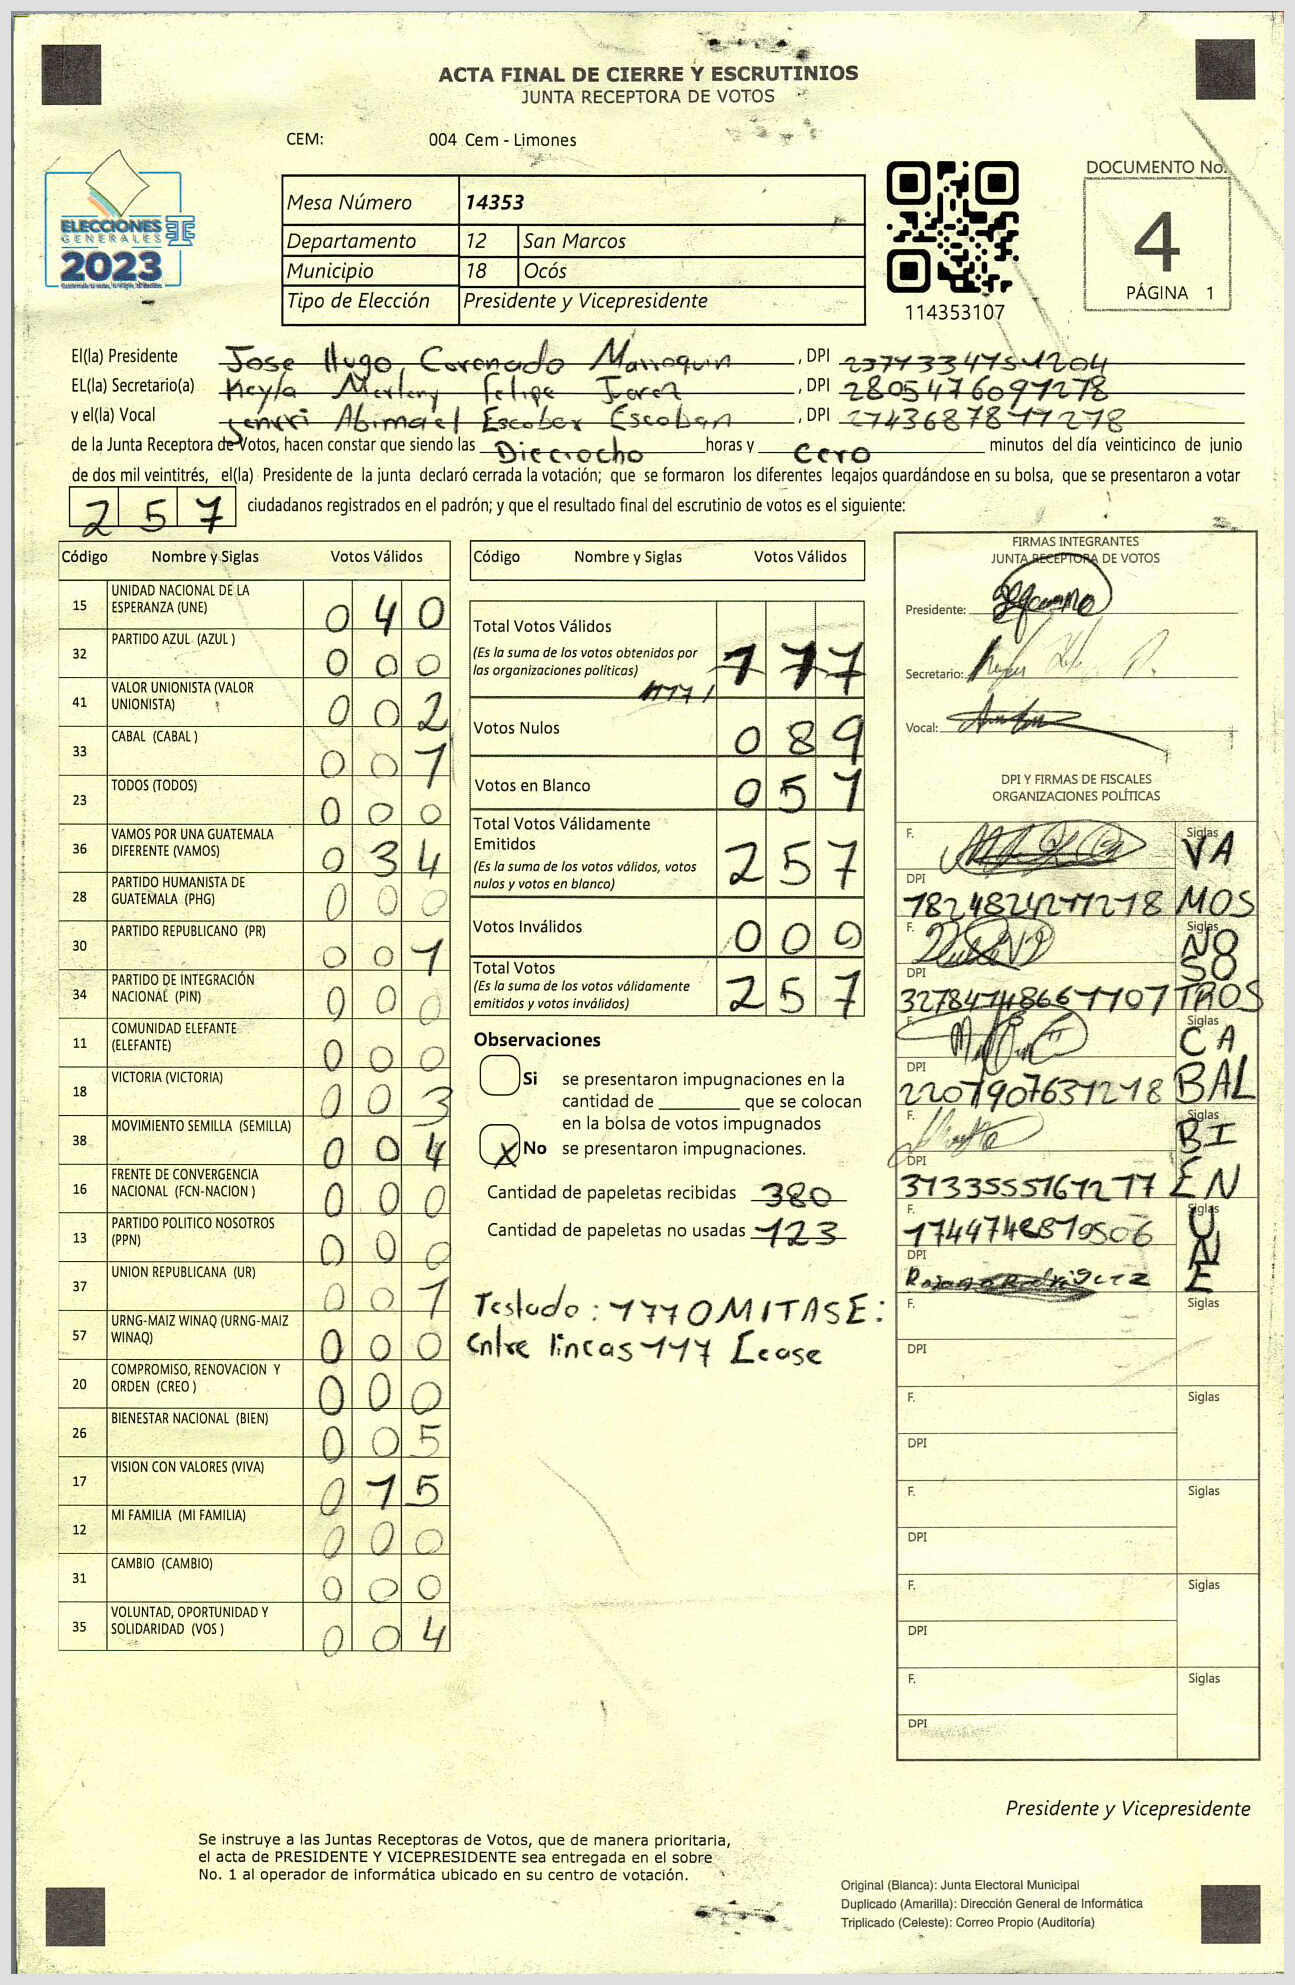 ACTA FINAL DE CIERRE Y ESCRUTINIOS
JUNTA RECEPTORA DE VOTOS
CEM: 004 Cem - Limones
ELECCIONES
GENERALES
2023
Mesa Número 14353
Departamento 12 San Marcos
Municipio 18 Ocós
Tipo de Elección Presidente y Vicepresidente
114353107
DOCUMENTO No.
4
PÁGINA 1
El(la) Presidente Jose Hugo Coronado Marroquin, DPI
EL(la) Secretario(a) Keyla Merleny Felipe Juarez, DPI 2805476091278
y el(la) Vocal Jenrri Abimael Escobar Escobar, DPI 2743687871278
de la Junta Receptora de Votos, hacen constar que siendo las Dieciocho horas y Cero minutos del día veinticinco de junio
de dos mil veintitrés, el(la) Presidente de la junta declaró cerrada la votación; que se formaron los diferentes legajos guardándose en su bolsa, que se presentaron a votar
257 ciudadanos registrados en el padrón; y que el resultado final del escrutinio de votos es el siguiente:
Código Nombre y Siglas Votos Válidos
15 UNIDAD NACIONAL DE LA ESPERANZA (UNE) 040
32 PARTIDO AZUL (AZUL ) 000
41 VALOR UNIONISTA (VALOR UNIONISTA) 002
33 CABAL (CABAL ) 007
23 TODOS (TODOS) 000
36 VAMOS POR UNA GUATEMALA DIFERENTE (VAMOS) 034
28 PARTIDO HUMANISTA DE GUATEMALA (PHG) 000
30 PARTIDO REPUBLICANO (PR) 001
34 PARTIDO DE INTEGRACIÓN NACIONAL (PIN) 000
11 COMUNIDAD ELEFANTE (ELEFANTE) 000
18 VICTORIA (VICTORIA) 003
38 MOVIMIENTO SEMILLA (SEMILLA) 004
16 FRENTE DE CONVERGENCIA NACIONAL (FCN-NACION ) 000
13 PARTIDO POLITICO NOSOTROS (PPN) 000
37 UNION REPUBLICANA (UR) 001
57 URNG-MAIZ WINAQ (URNG-MAIZ WINAQ) 000
20 COMPROMISO, RENOVACION Y ORDEN (CREO ) 000
26 BIENESTAR NACIONAL (BIEN) 005
17 VISION CON VALORES (VIVA) 015
12 MI FAMILIA (MI FAMILIA) 000
31 CAMBIO (CAMBIO) 000
35 VOLUNTAD, OPORTUNIDAD Y SOLIDARIDAD (VOS ) 004
Código Nombre y Siglas Votos Válidos
Total Votos Válidos
(Es la suma de los votos obtenidos por
las organizaciones políticas) 177
117
Votos Nulos 089
Votos en Blanco 051
Total Votos Válidamente
Emitidos
(Es la suma de los votos válidos, votos
nulos y votos en blanco) 257
Votos Inválidos 000
Total Votos
(Es la suma de los votos válidamente
emitidos y votos inválidos) 257
Observaciones
Si se presentaron impugnaciones en la
cantidad de ________ que se colocan
en la bolsa de votos impugnados
X No se presentaron impugnaciones.
Cantidad de papeletas recibidas 380
Cantidad de papeletas no usadas 123
Testado: 177 OMITASE:
Entre lineas 117 Lease
FIRMAS INTEGRANTES
JUNTA RECEPTORA DE VOTOS
Presidente:
Secretario:
Vocal:
DPI Y FIRMAS DE FISCALES
ORGANIZACIONES POLÍTICAS
F. Siglas VAMOS
DPI 1824824211218
F. Siglas NOSOTROS
DPI
F. Siglas CABAL
DPI 2201907631218
F. Siglas BIEN
DPI
F. 1749748810506 Siglas UNE
DPI
F. Siglas
DPI
F. Siglas
DPI
F. Siglas
DPI
F. Siglas
DPI
F. Siglas
DPI
Presidente y Vicepresidente
Se instruye a las Juntas Receptoras de Votos, que de manera prioritaria,
el acta de PRESIDENTE Y VICEPRESIDENTE sea entregada en el sobre
No. 1 al operador de informática ubicado en su centro de votación.
Original (Blanca): Junta Electoral Municipal
Duplicado (Amarilla): Dirección General de Informática
Triplicado (Celeste): Correo Propio (Auditoría)